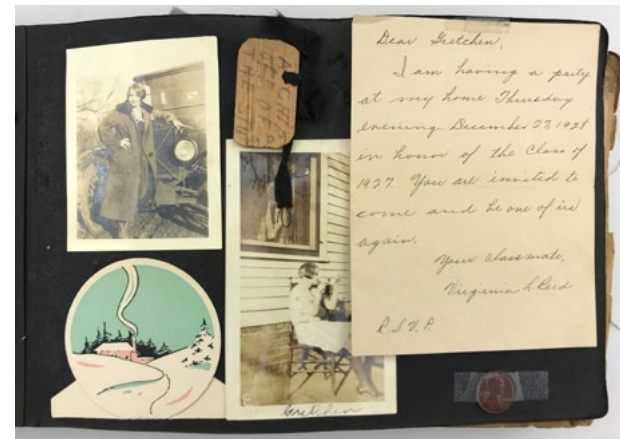 A CHIP
OFF OF
THE
Dear Gretchen,
I am having a party
at my home Thursday
evening December 27, 1928
in honor of the Class of
1927. You are invited to
come and be one of us
again.
Your classmate,
Virginia L. Reed
R.S.V.P.
Gretchen